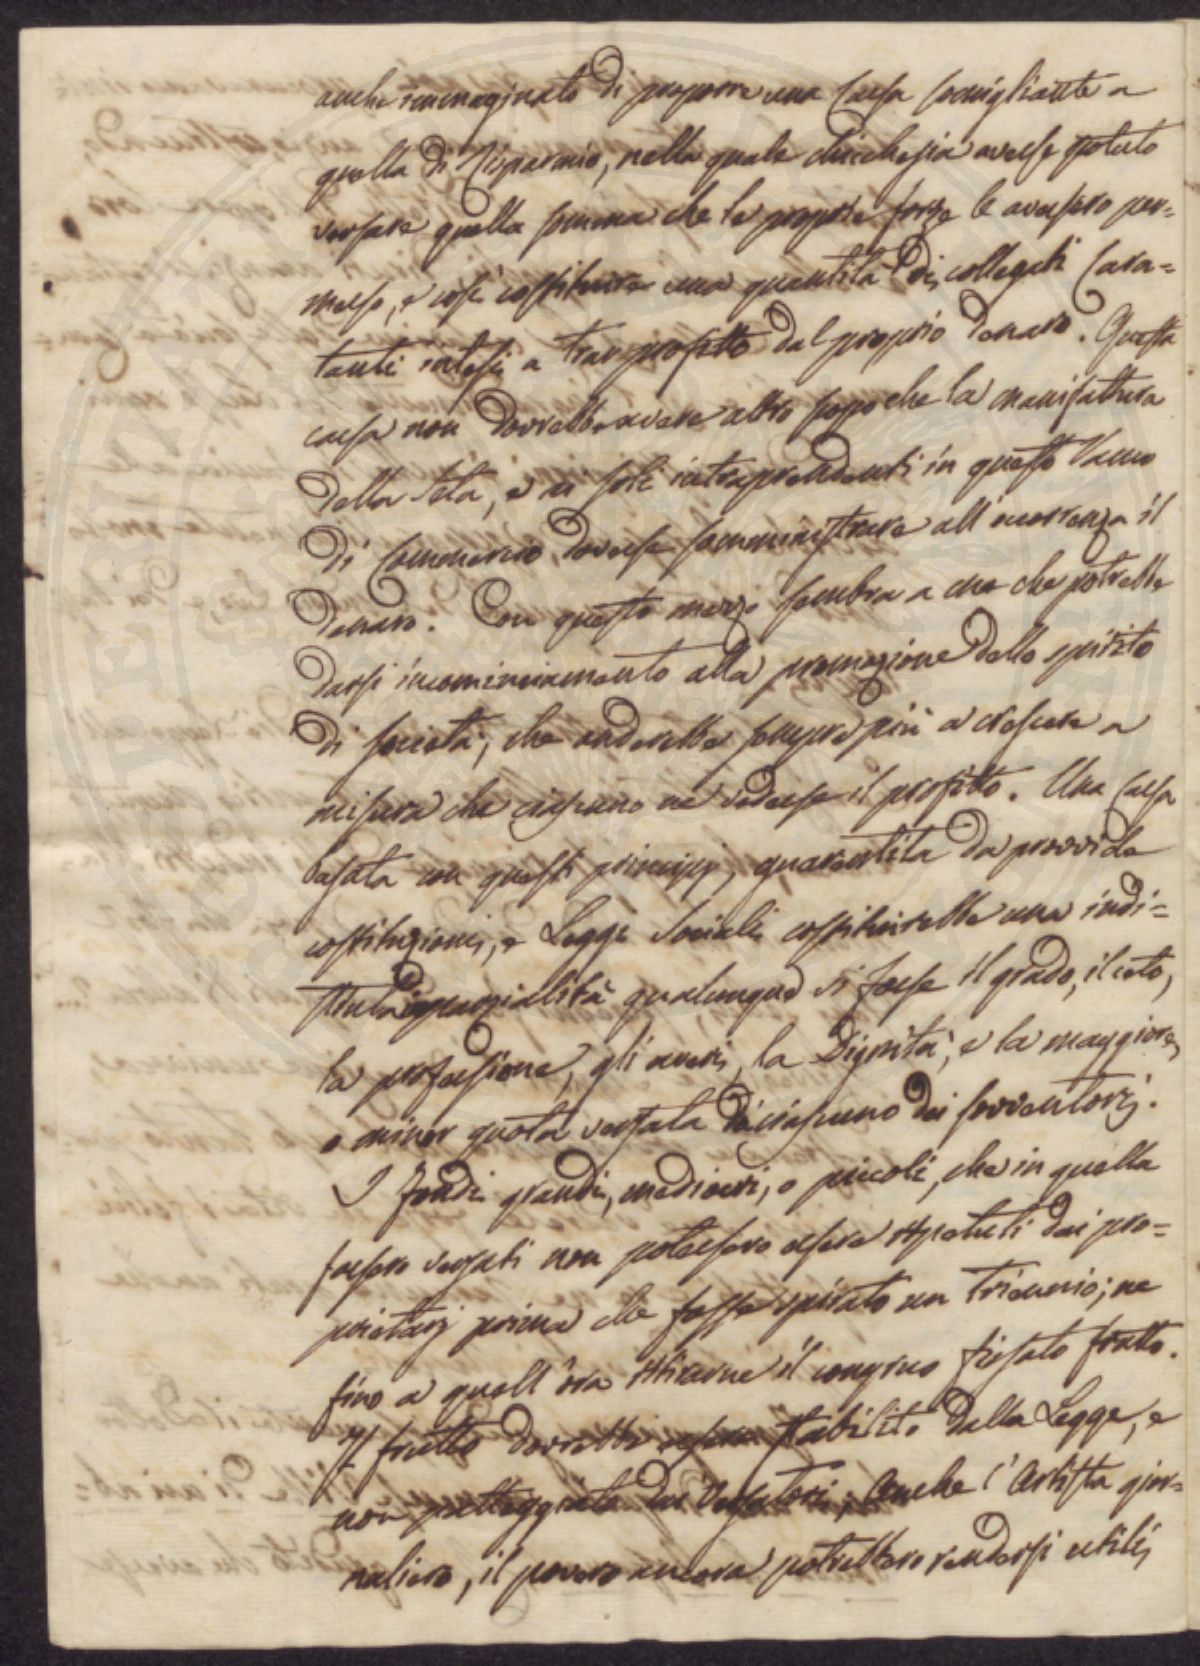 anche immaginato di proporre una Cassa somigliante a
quella di Risparmio, nella quale chicchesia avesse potuto
versare quella somma che le proprie forze le avessero per=
messo, e così costituire una quantità di collegati Cara=
tanti intesi a trar profitto dal proprio denaro. Questa
cassa non dovrebbe avere altro scopo che la manifattura
della Seta, e ai soli intraprendenti in questo Ramo
di Commercio dovesse somministrare all'occorrenza il
denaro. Con questo mezzo sembra a me che potrebbe
darsi incominciamento alla promozione dello spirito
di società, che anderebbe sempre più a crescere a
misura che ciascuno ne vedesse il profitto. Una Cassa
basata con questi principj, guarentita da provvide
costituzioni, e Legge Sociali costituirebbe una indi=
stinta imparzialità qualunque si fosse il grado, il ceto,
la professione, gli averi, la Dignità, e la maggiore,
o minor quota versata da ciascuno dei sovventorj.
I fondi grandi, mediocri, o piccoli, che in quella
fossero versati non potessero essere ripetuti dai pro=
prietarj prima che fosse spirato un Triennio; ne
fino a quell'ora ritirarne il congruo fissato frutto.
Il frutto dovrebbe essere stabilito dalla Legge, e
non patteggiato dai Versatori; Anche l'Artista gior=
naliero, il povero ancora potrebbero rendersi utili,